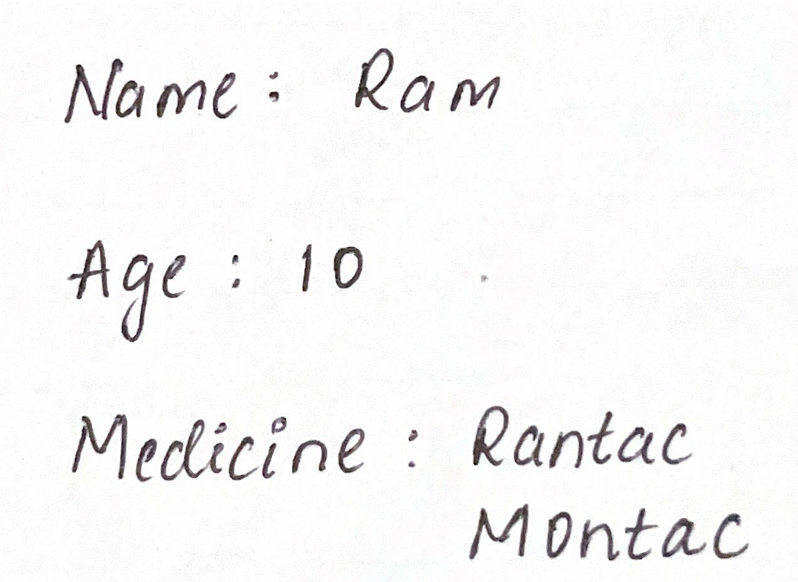 Name : Ram
Age : 10
Medicine : Rantac
Montac